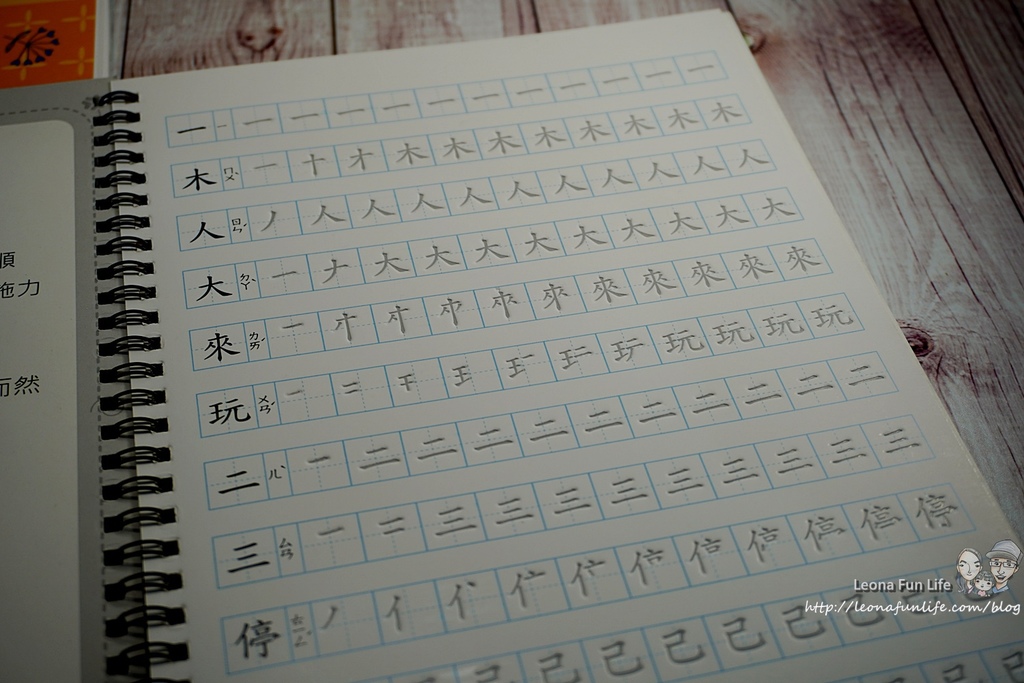 施力
而然
一 ㄧ 一 一 一 一 一 一 一 一 一 一 一
木 ㄇㄨˋ 一 十 才 木 木 木 木 木 木 木 木
人 ㄖㄣˊ 丿 人 人 人 人 人 人 人 人 人 人
大 ㄉㄚˋ 一 ナ 大 大 大 大 大 大 大 大 大
來 ㄌㄞˊ 一 來 來 來 來 來
玩 ㄨㄢˊ 一 二 玩 玩 玩 玩
二 ㄦˋ 一 二 二 二 二 二 二 二 二 二 二
三 ㄙㄢ 一 二 三 三 三 三 三 三 三 三 三
停 ㄊㄧㄥˊ 丿 亻 停 停 停
己 己 己 己 己 己
Leona Fun Life
http://leonafunlife.com/blog